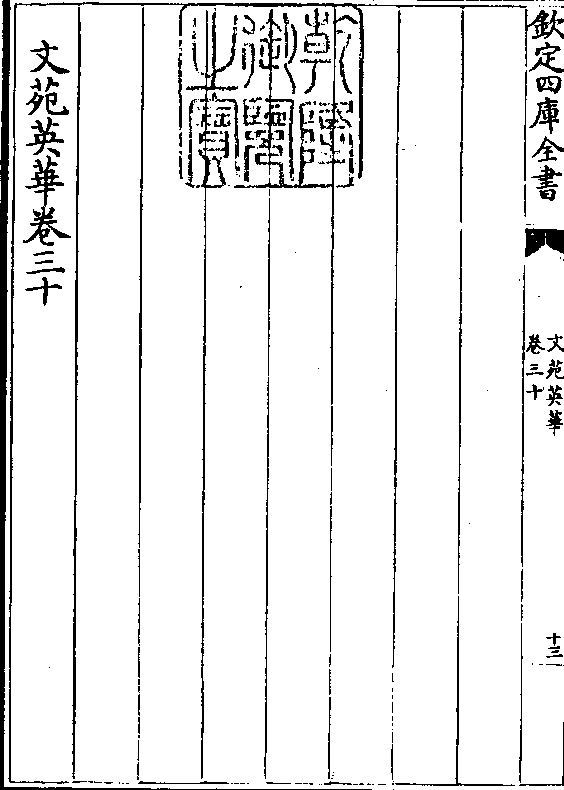 欽定四庫全書
文苑英華
卷三十
十三
乾隆
御覽
之寶
文苑英華卷三十